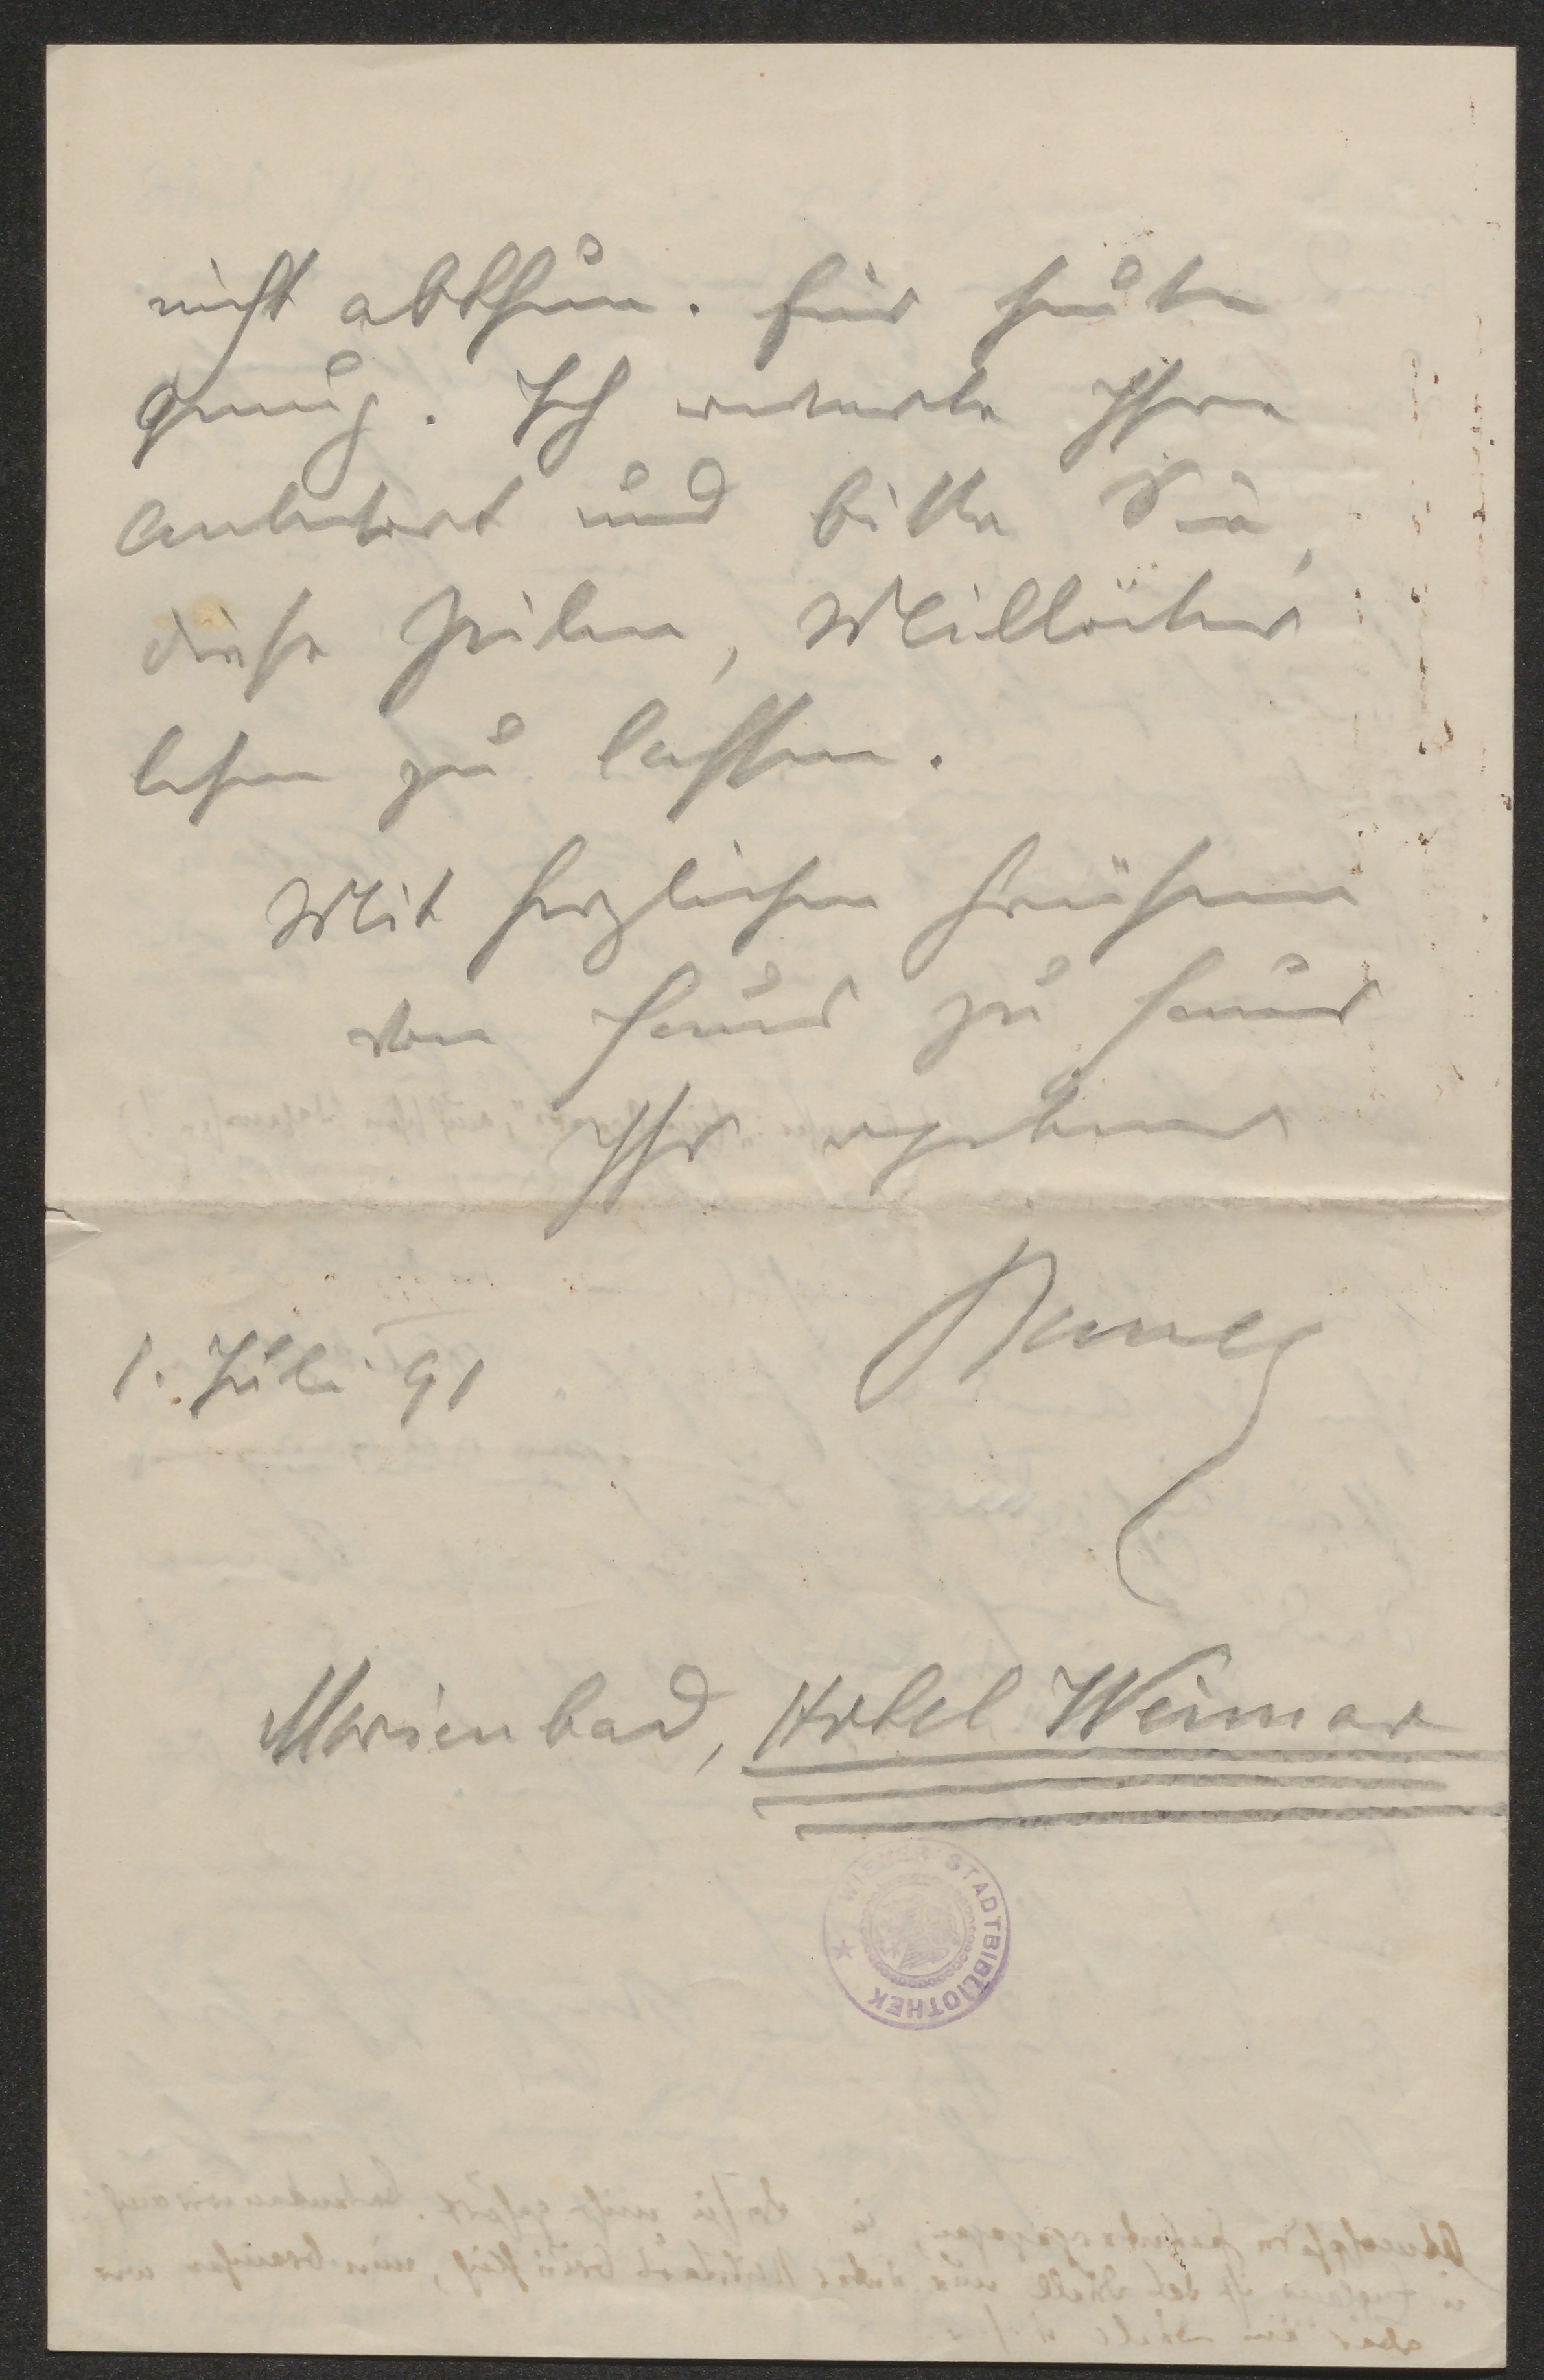 nicht abthun. Für heute
genug. Ich erwarte Ihre
Antwort und bitte Sie,
diese Zeilen, Millöcker
lesen zu lassen.
Mit herzlichen Grüßen
von Haus zu Haus
Ihr ergebener
1. Juli 91
Marienbad, Hotel Weimar
WIENER STADTBIBLIOTHEK